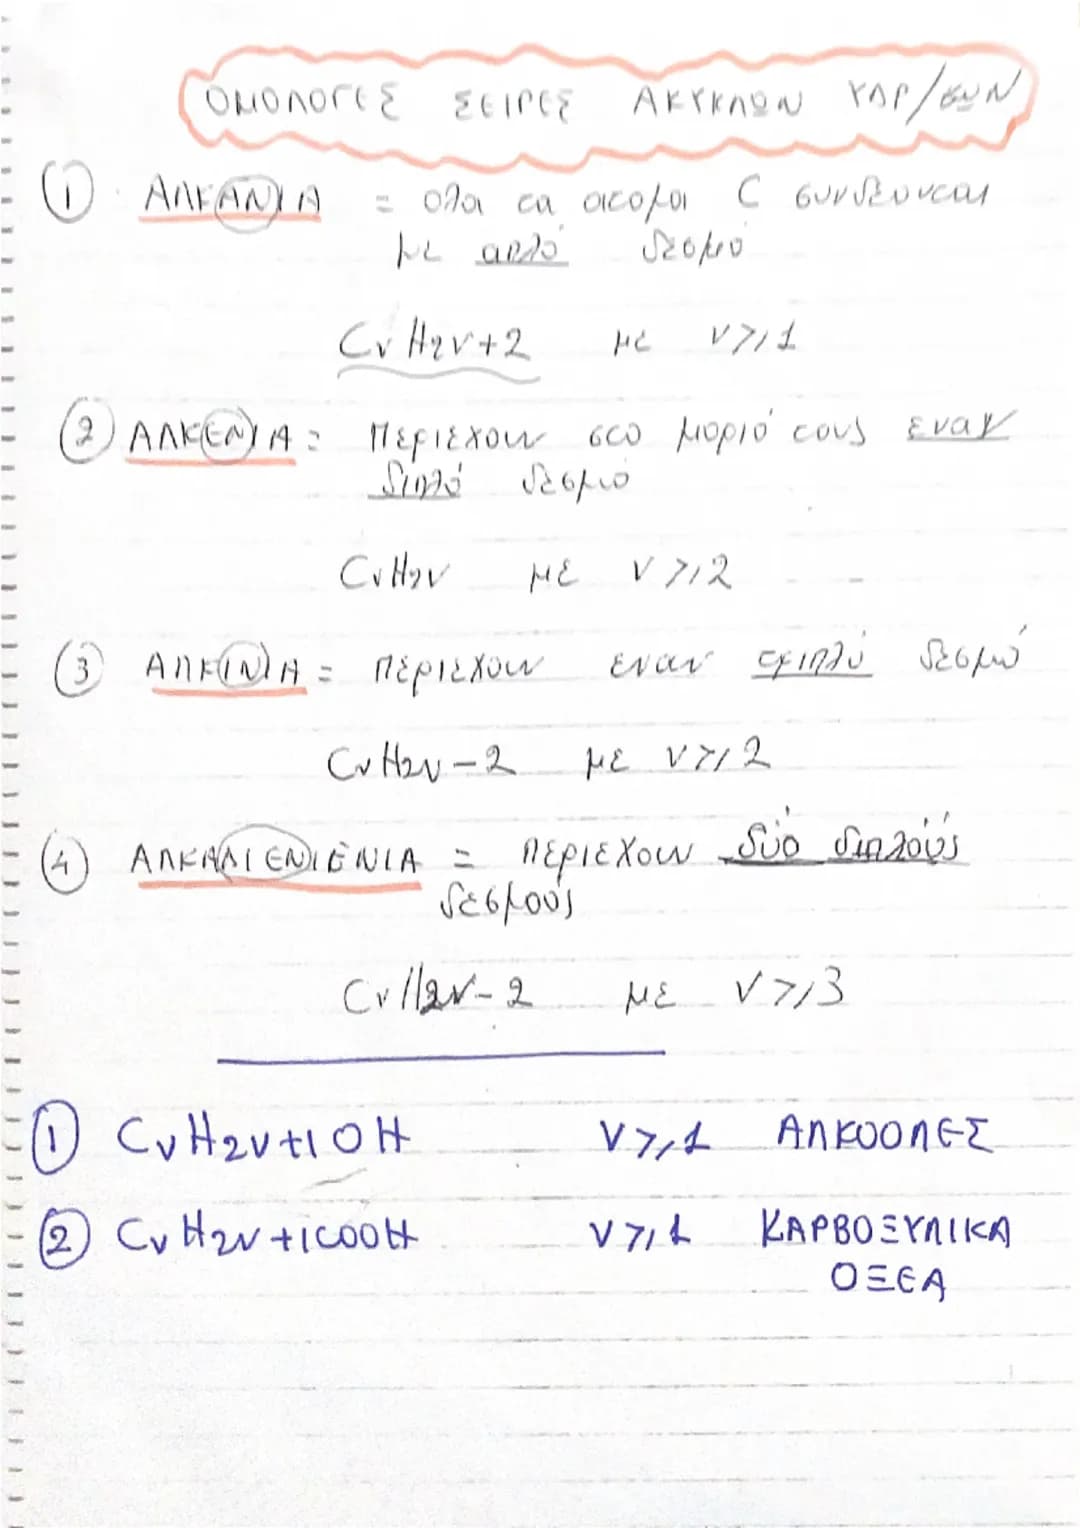 ΟΜΟΛΟΓΕΣ ΣΕΙΡΕΣ ΑΚΥΚΛΩΝ ΥΔΡ/ΘΩΝ
① ΑΛΚΑΝΙΑ = ολα τα ατομα C συνδεονται
με απλό δεσμό
CνH2ν+2 με ν≥1
② ΑΛΚΕΝΙΑ = περιεχουν στο μοριό τους εναν
διπλό δεσμό
CνH2ν με ν≥2
③ ΑΛΚΙΝΙΑ = περιεχουν εναν τριπλό δεσμό
CνH2ν-2 με ν≥2
④ ΑΛΚΑΔΙΕΝΙΕΝΙΑ = περιεχουν δύο διπλούς
δεσμούς
CνH2ν-2 με ν≥3
① CνH2ν+1OH ν≥1 ΑΛΚΟΟΛΕΣ
② CνH2ν+1COOH ν≥1 ΚΑΡΒΟΞΥΛΙΚΑ
ΟΞΕΑ